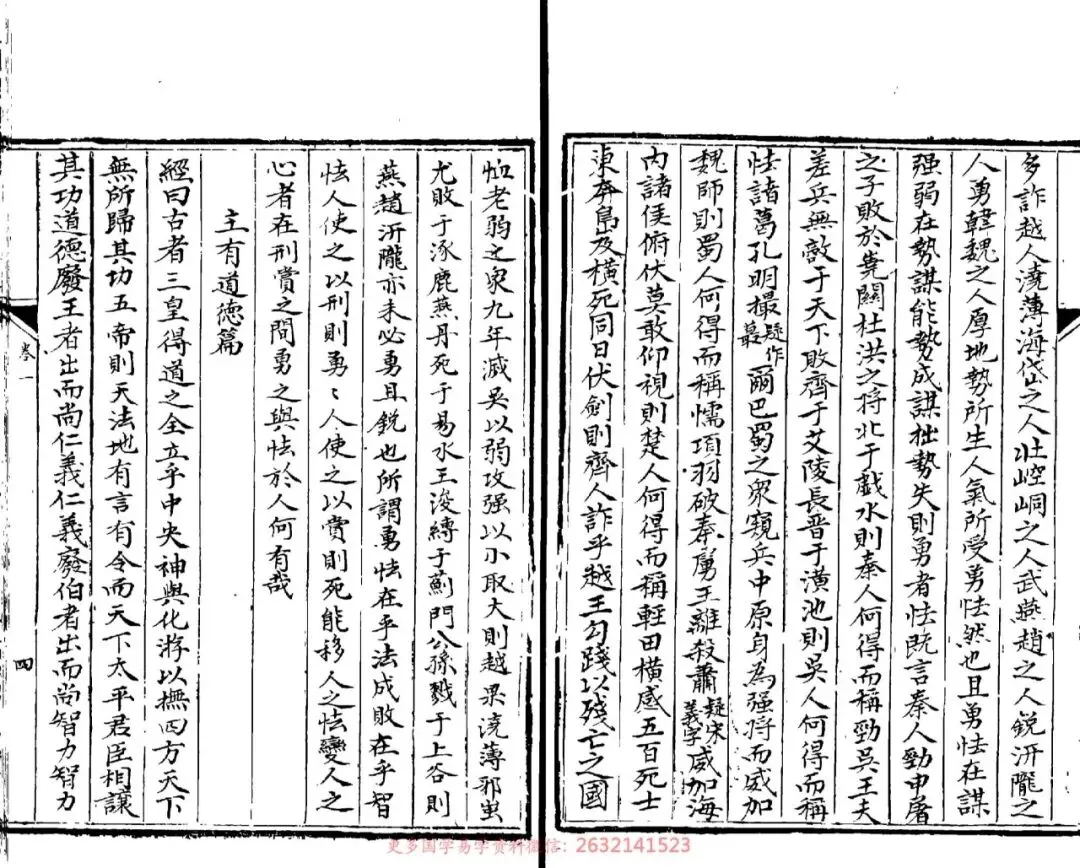 多詐越人澆薄海岱之人壯崆峒之人武燕趙之人銳汧隴之
人勇韓魏之人厚地勢所生人氣所受勇怯然也且勇怯在謀
强弱在勢謀能勢成謀拙勢失則勇者怯既言秦人勁申屠
之子敗於嶢關杜洪之将北于戲水則秦人何得而稱勁吳王夫
差兵無敵于天下敗齊于艾陵長晋于潢池則吳人何得而稱
怯諸葛孔明撮疑作最爾巴蜀之衆窺兵中原身為强将而威加
魏師則蜀人何得而稱懦項羽破秦虜王離殺蕭疑宋義字威加海
内諸侯俯伏莫敢仰視則楚人何得而稱輕田橫感五百死士
東奔島及橫死同日伏劍則齊人詐乎越王勾踐以殘亡之國
恤老弱之衆九年滅吳以弱攻强以小取大則越果澆薄邪蚩
尤敗于涿鹿燕丹死于易水王浚縛于薊門公孫戮于上谷則
燕趙汧隴亦未必勇且銳也所謂勇怯在乎法成敗在乎智
怯人使之以刑則勇〻人使之以賞則死能移人之怯變人之
心者在刑賞之間勇之與怯於人何有哉
主有道德篇
經曰古者三皇得道之全立乎中央神與化游以撫四方天下
無所歸其功五帝則天法地有言有令而天下太平君臣相讓
其功道德廢王者出而尚仁義仁義廢伯者出而尚智力智力
卷一
四
更多国学易学资料微信：2632141523